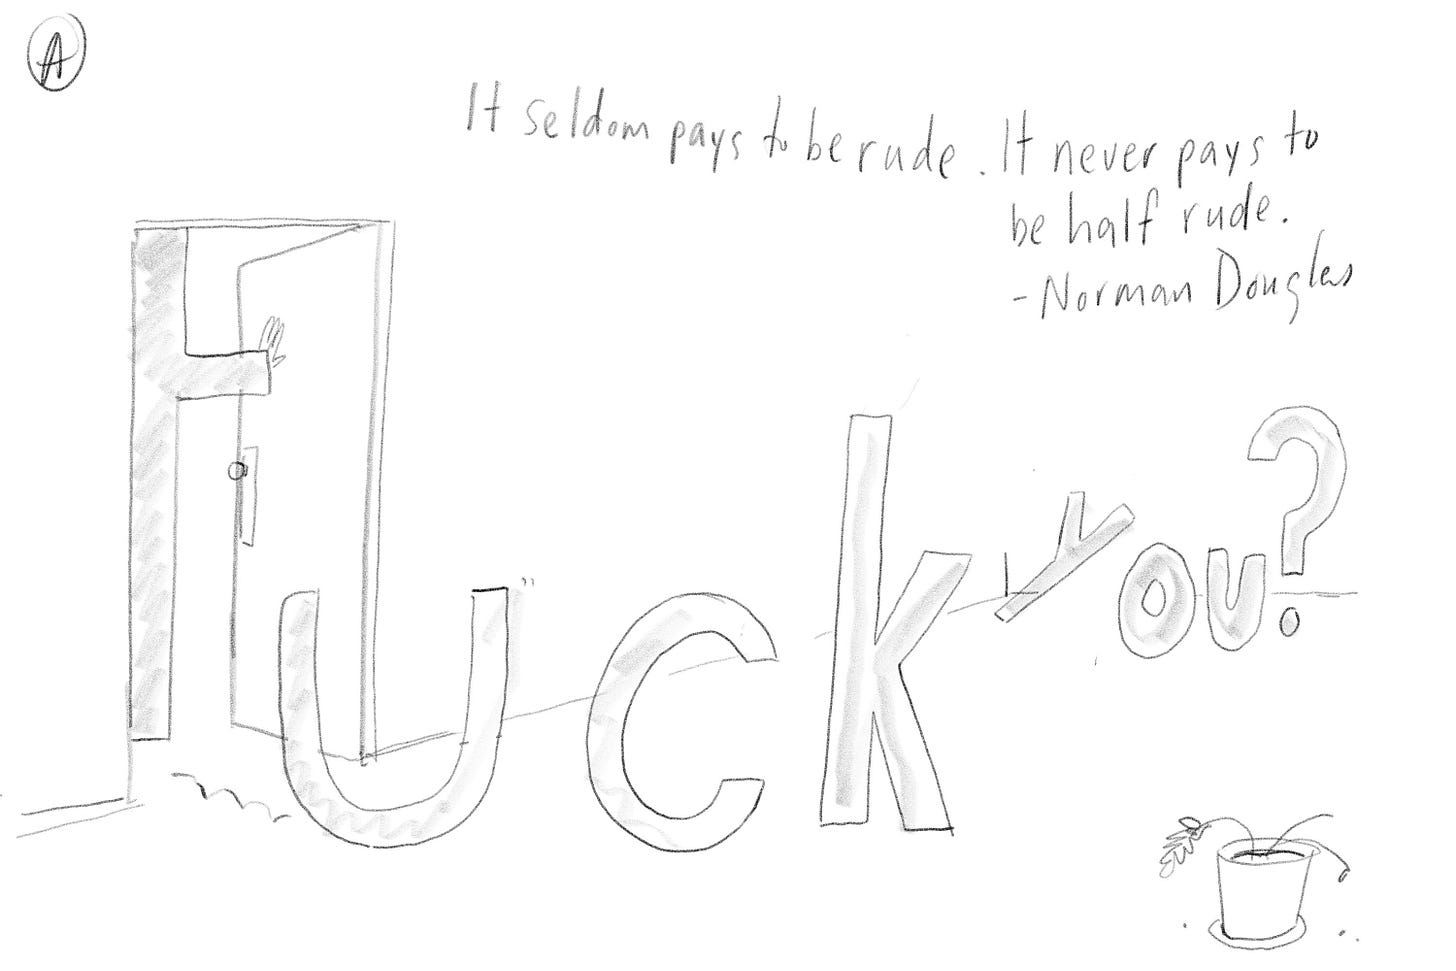 A
It seldom pays to be rude. It never pays to
be half rude.
- Norman Douglas
Fuck you?